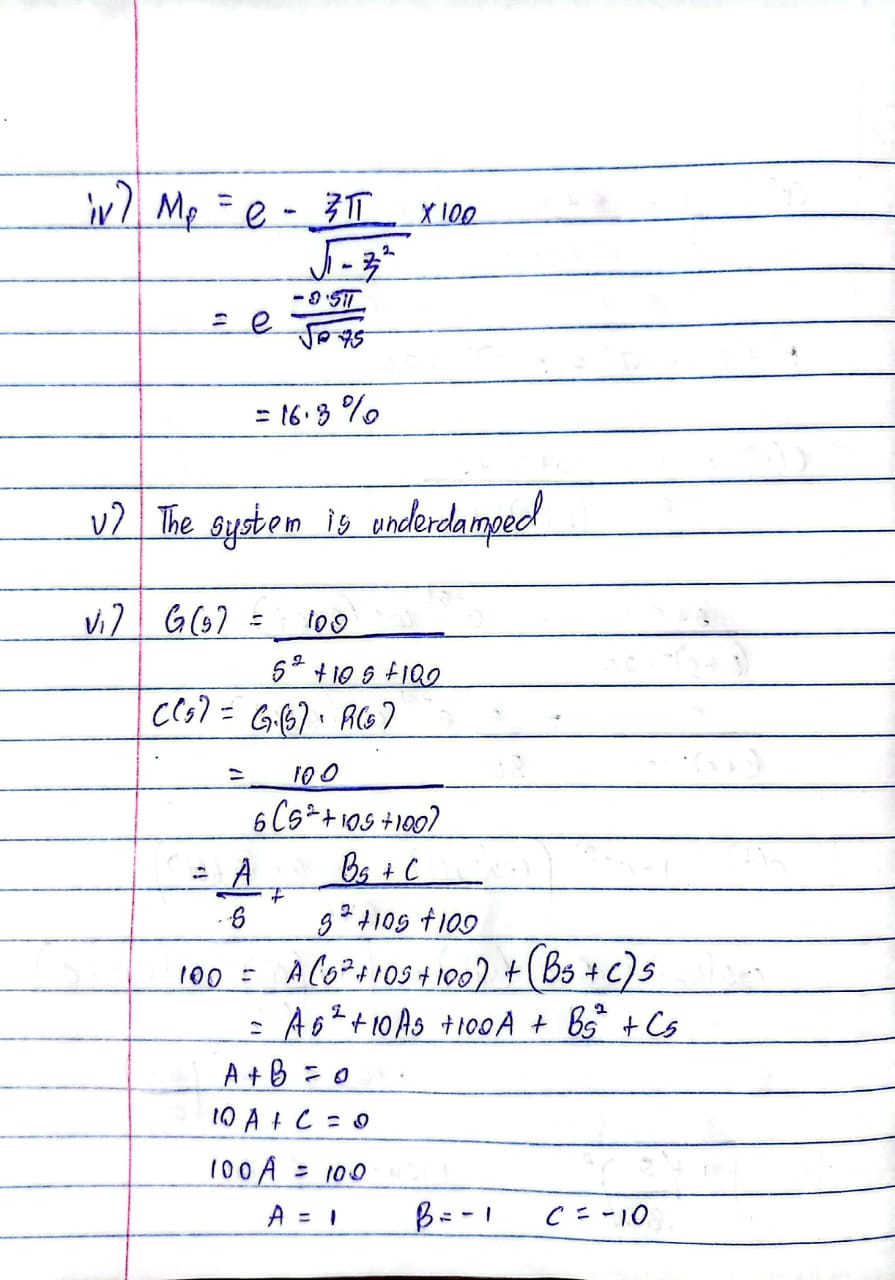 iv) Mp = e - ξπ / √1 - ξ² × 100
= e -0.5π / √0.75
= 16.3 %
v) The system is underdamped
vi) G(s) = 100 / s² + 10s + 100
C(s) = G(s) . R(s)
= 100 / s(s² + 10s + 100)
= A / s + Bs + C / s² + 10s + 100
100 = A(s² + 10s + 100) + (Bs + C)s
= As² + 10As + 100A + Bs² + Cs
A + B = 0
10A + C = 0
100A = 100
A = 1 B = -1 C = -10